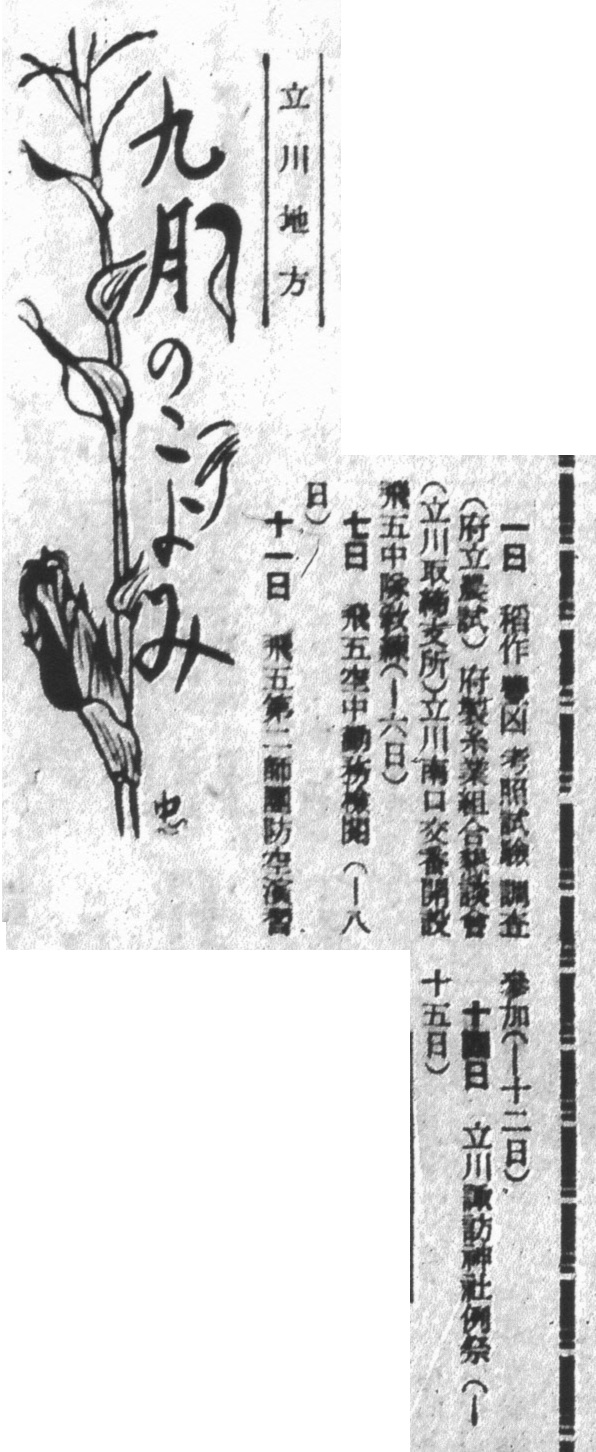 立川地方
九月のこよみ
忠
一日 稲作豊凶考照試験調査
(府立農試)府製糸業組合懇談會
(立川取締支所)立川南口交番開設
飛五中隊教練(ー六日)
七日 飛五空中勤務検閲(ー八
日)
十一日 飛五第二師團防空演習
参加(ー十二日)
十四日 立川諏訪神社例祭(ー
十五日)